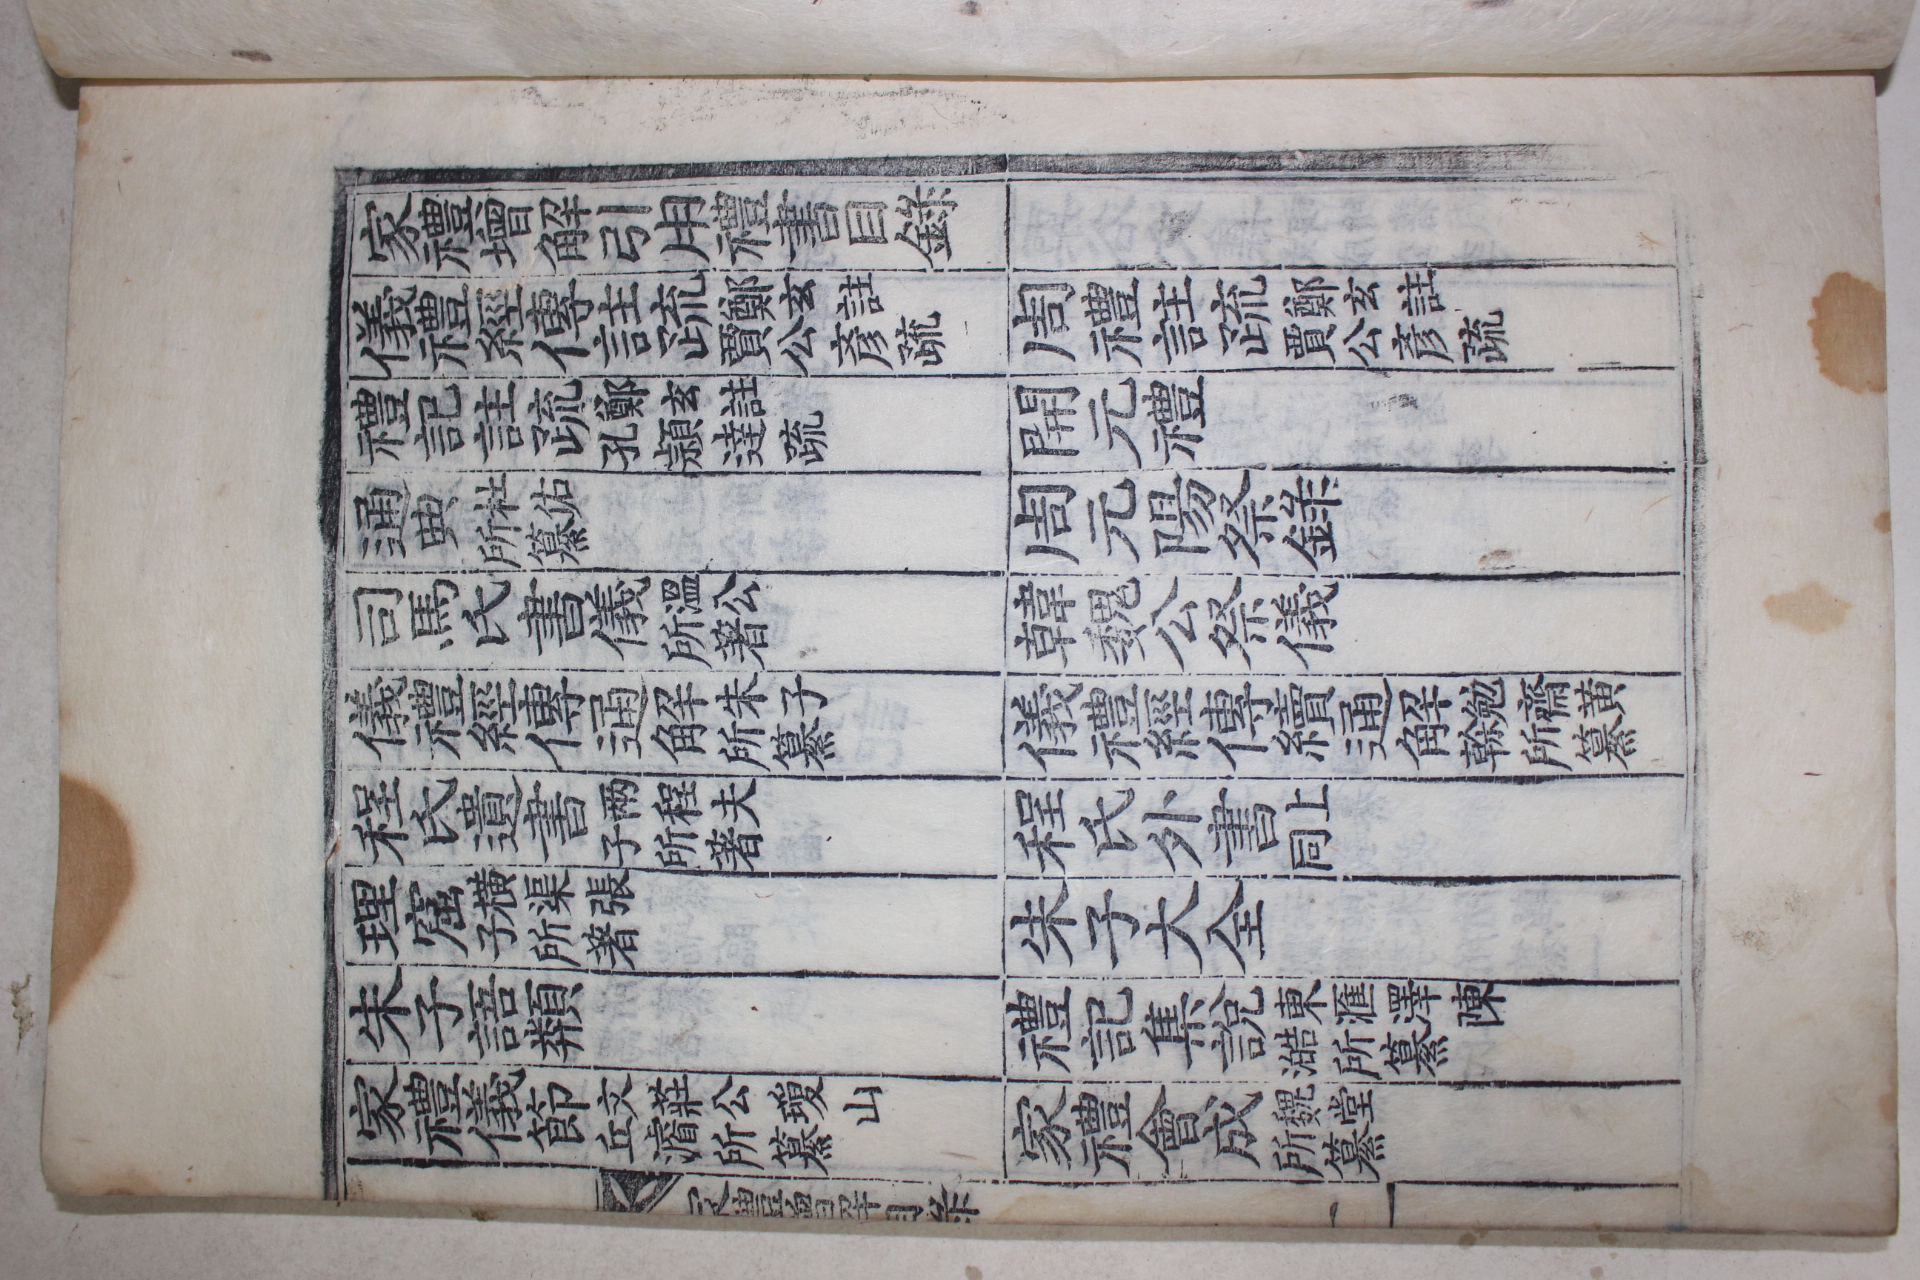 家禮增解引用禮書目錄
儀禮經傳註疏 鄭玄註賈公彥疏
周禮註疏 鄭玄註賈公彥疏
禮記註疏 鄭玄註孔穎達疏
開元禮
通典 杜佑所纂
周元陽祭錄
司馬氏書儀 溫公所著
韓魏公祭儀
儀禮經傳通解 朱子所纂
儀禮經傳續通解 勉齋黃榦所纂
程氏遺書 兩程夫子所著
程氏外書 同上
理窟 橫渠張子所著
朱子大全
朱子語類
禮記集說 東匯澤陳澔所纂
家禮儀節 文莊公瓊山丘濬所纂
家禮會成 魏堂所纂
家禮增解目錄